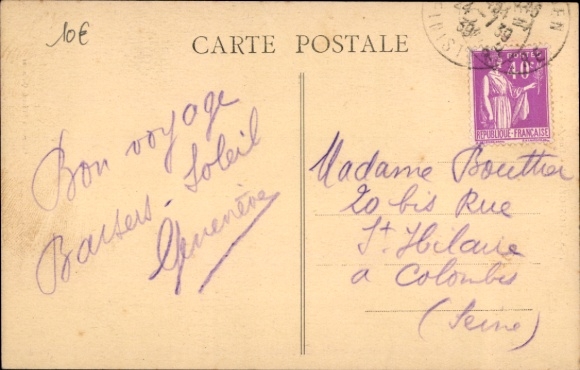 10€
CARTE POSTALE
Bon voyage
Baisers - Soleil
Geneviève
24-7
39
POSTES
40c
REPUBLIQUE-FRANÇAISE
Madame Bouthier
20 bis Rue
St. Hilaire
a Colombes
(Seine)